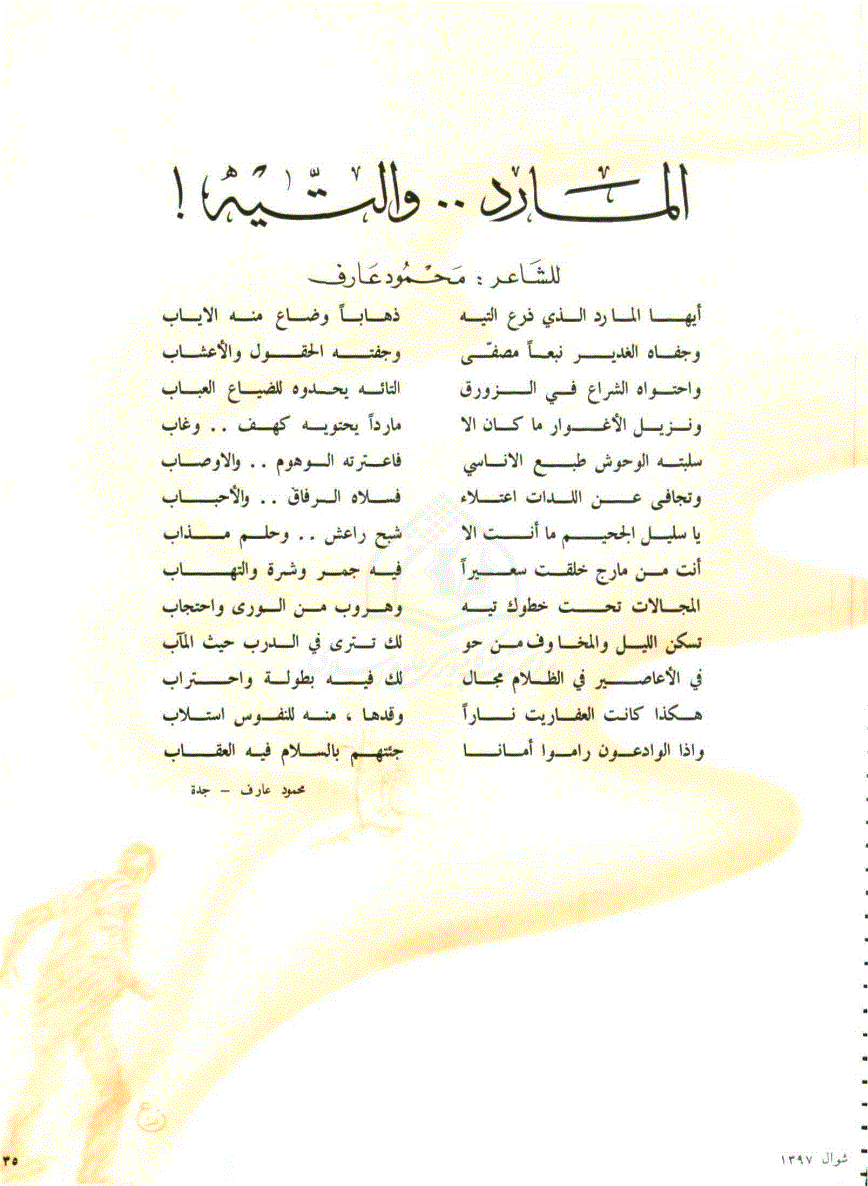 المارد .. والتّيه !
للشاعر : محمود عارف
أيها المارد الذي ذرع التيه ذهاباً وضاع منه الاياب
وجفاه الغدير نبعاً مصفّى وجفته الحقول والأعشاب
واحتواه الشراع في الزورق التائه يحدوه للضياع العباب
ونزيل الأغوار ما كان الا مارداً يحتويه كهف .. وغاب
سلبته الوحوش طبع الاناسي فاعترته الوهوم .. والاوصاب
وتجافى عن اللدات اعتلاء فسلاه الرفاق .. والأحباب
يا سليل الجحيم ما أنت الا شبح راعش .. وحلم مذاب
أنت من مارج خلقت سعيراً فيه جمر وشرة والتهاب
المجالات تحت خطوك تيه وهروب من الورى واحتجاب
تسكن الليل والمخاوف من حو لك تترى في الدرب حيث المآب
في الأعاصير في الظلام مجال لك فيه بطولة واحتراب
هكذا كانت العفاريت ناراً وقدها ، منه للنفوس استلاب
واذا الوادعون راموا أمانا جئتهم بالسلام فيه العقاب
محمود عارف – جدة
شوال ١٣٩٧
٣٥